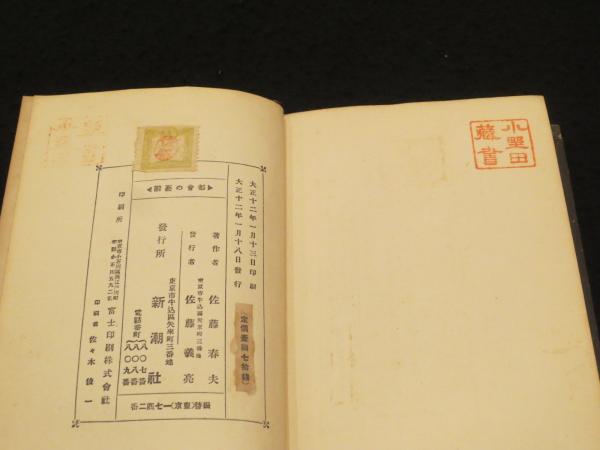 小野田
藏書
大正十二年一月十三日印刷
大正十二年一月十八日發行
都會の憂鬱
定價壹圓七拾錢
著作者 佐藤春夫
發行者 佐藤義亮
東京市牛込區矢來町三番地
發行所 新潮社
東京市牛込區矢來町三番地
電話番町
八〇八番
八〇九番
振替(東京)一七四二番
印刷所 富士印刷株式會社
印刷者 佐々木俊一